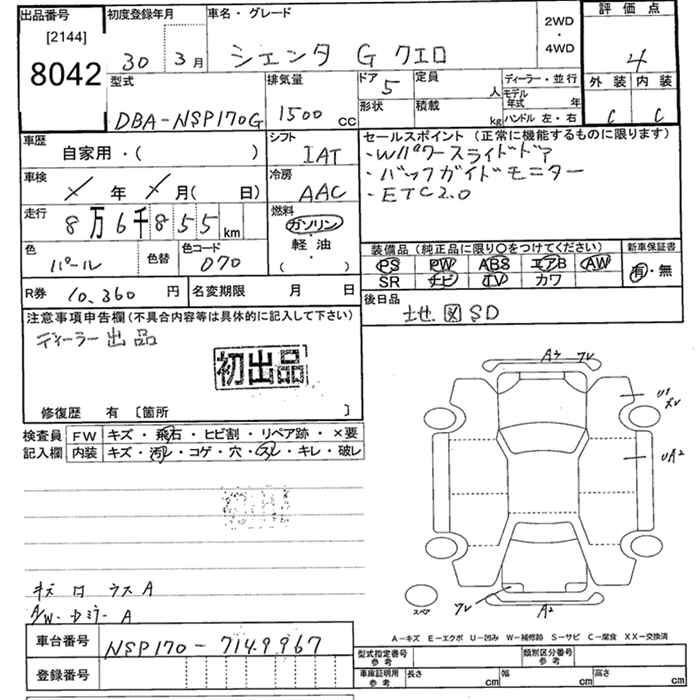 出品番号
[2144]
8042
初度登録年月
30年 3月
車名・グレード
シエンタ G クエロ
2WD
・
4WD
評価点
4
型式
DBA-NSP170G
排気量
1500 cc
ドア
5
定員
人
形状
積載
kg
ディーラー・並行
モデル年式 年
ハンドル 左・右
外装 内装
C C
車歴
自家用・( )
シフト
IAT
車検
年 月( 日)
冷房
AAC
走行
8万6千855 km
燃料
ガソリン
・
軽油
( )
色
パール
色替
色コード
070
R券 10,360 円
名変期限 月 日
セールスポイント (正常に機能するものに限ります)
・Wパワースライドドア
・バックガイドモニター
・ETC2.0
装備品(純正品に限り○をつけてください)
PS PW ABS エアB AW
SR ナビ TV カワ
新車保証書
有・無
後日品
地図SD
注意事項申告欄(不具合内容等は具体的に記入して下さい)
ディーラー出品
初出品
修復歴 有 [箇所 ]
検査員記入欄
FW キズ・飛石・ヒビ割・リペア跡・×要
内装 キズ・汚レ・コゲ・穴・スレ・キレ・破レ
キズ ロ ウス A
A/W・ドミラー A
A3 ワレ
U1
UA2
スペア
ワレ A2
A-キズ E-エクボ U-凹み W-補修跡 S-サビ C-腐食 XX-交換済
車台番号
NSP170-7149967
登録番号
型式指定番号
参考
類別区分番号
参考
車庫証明用
参考
長さ cm
幅 cm
高さ cm